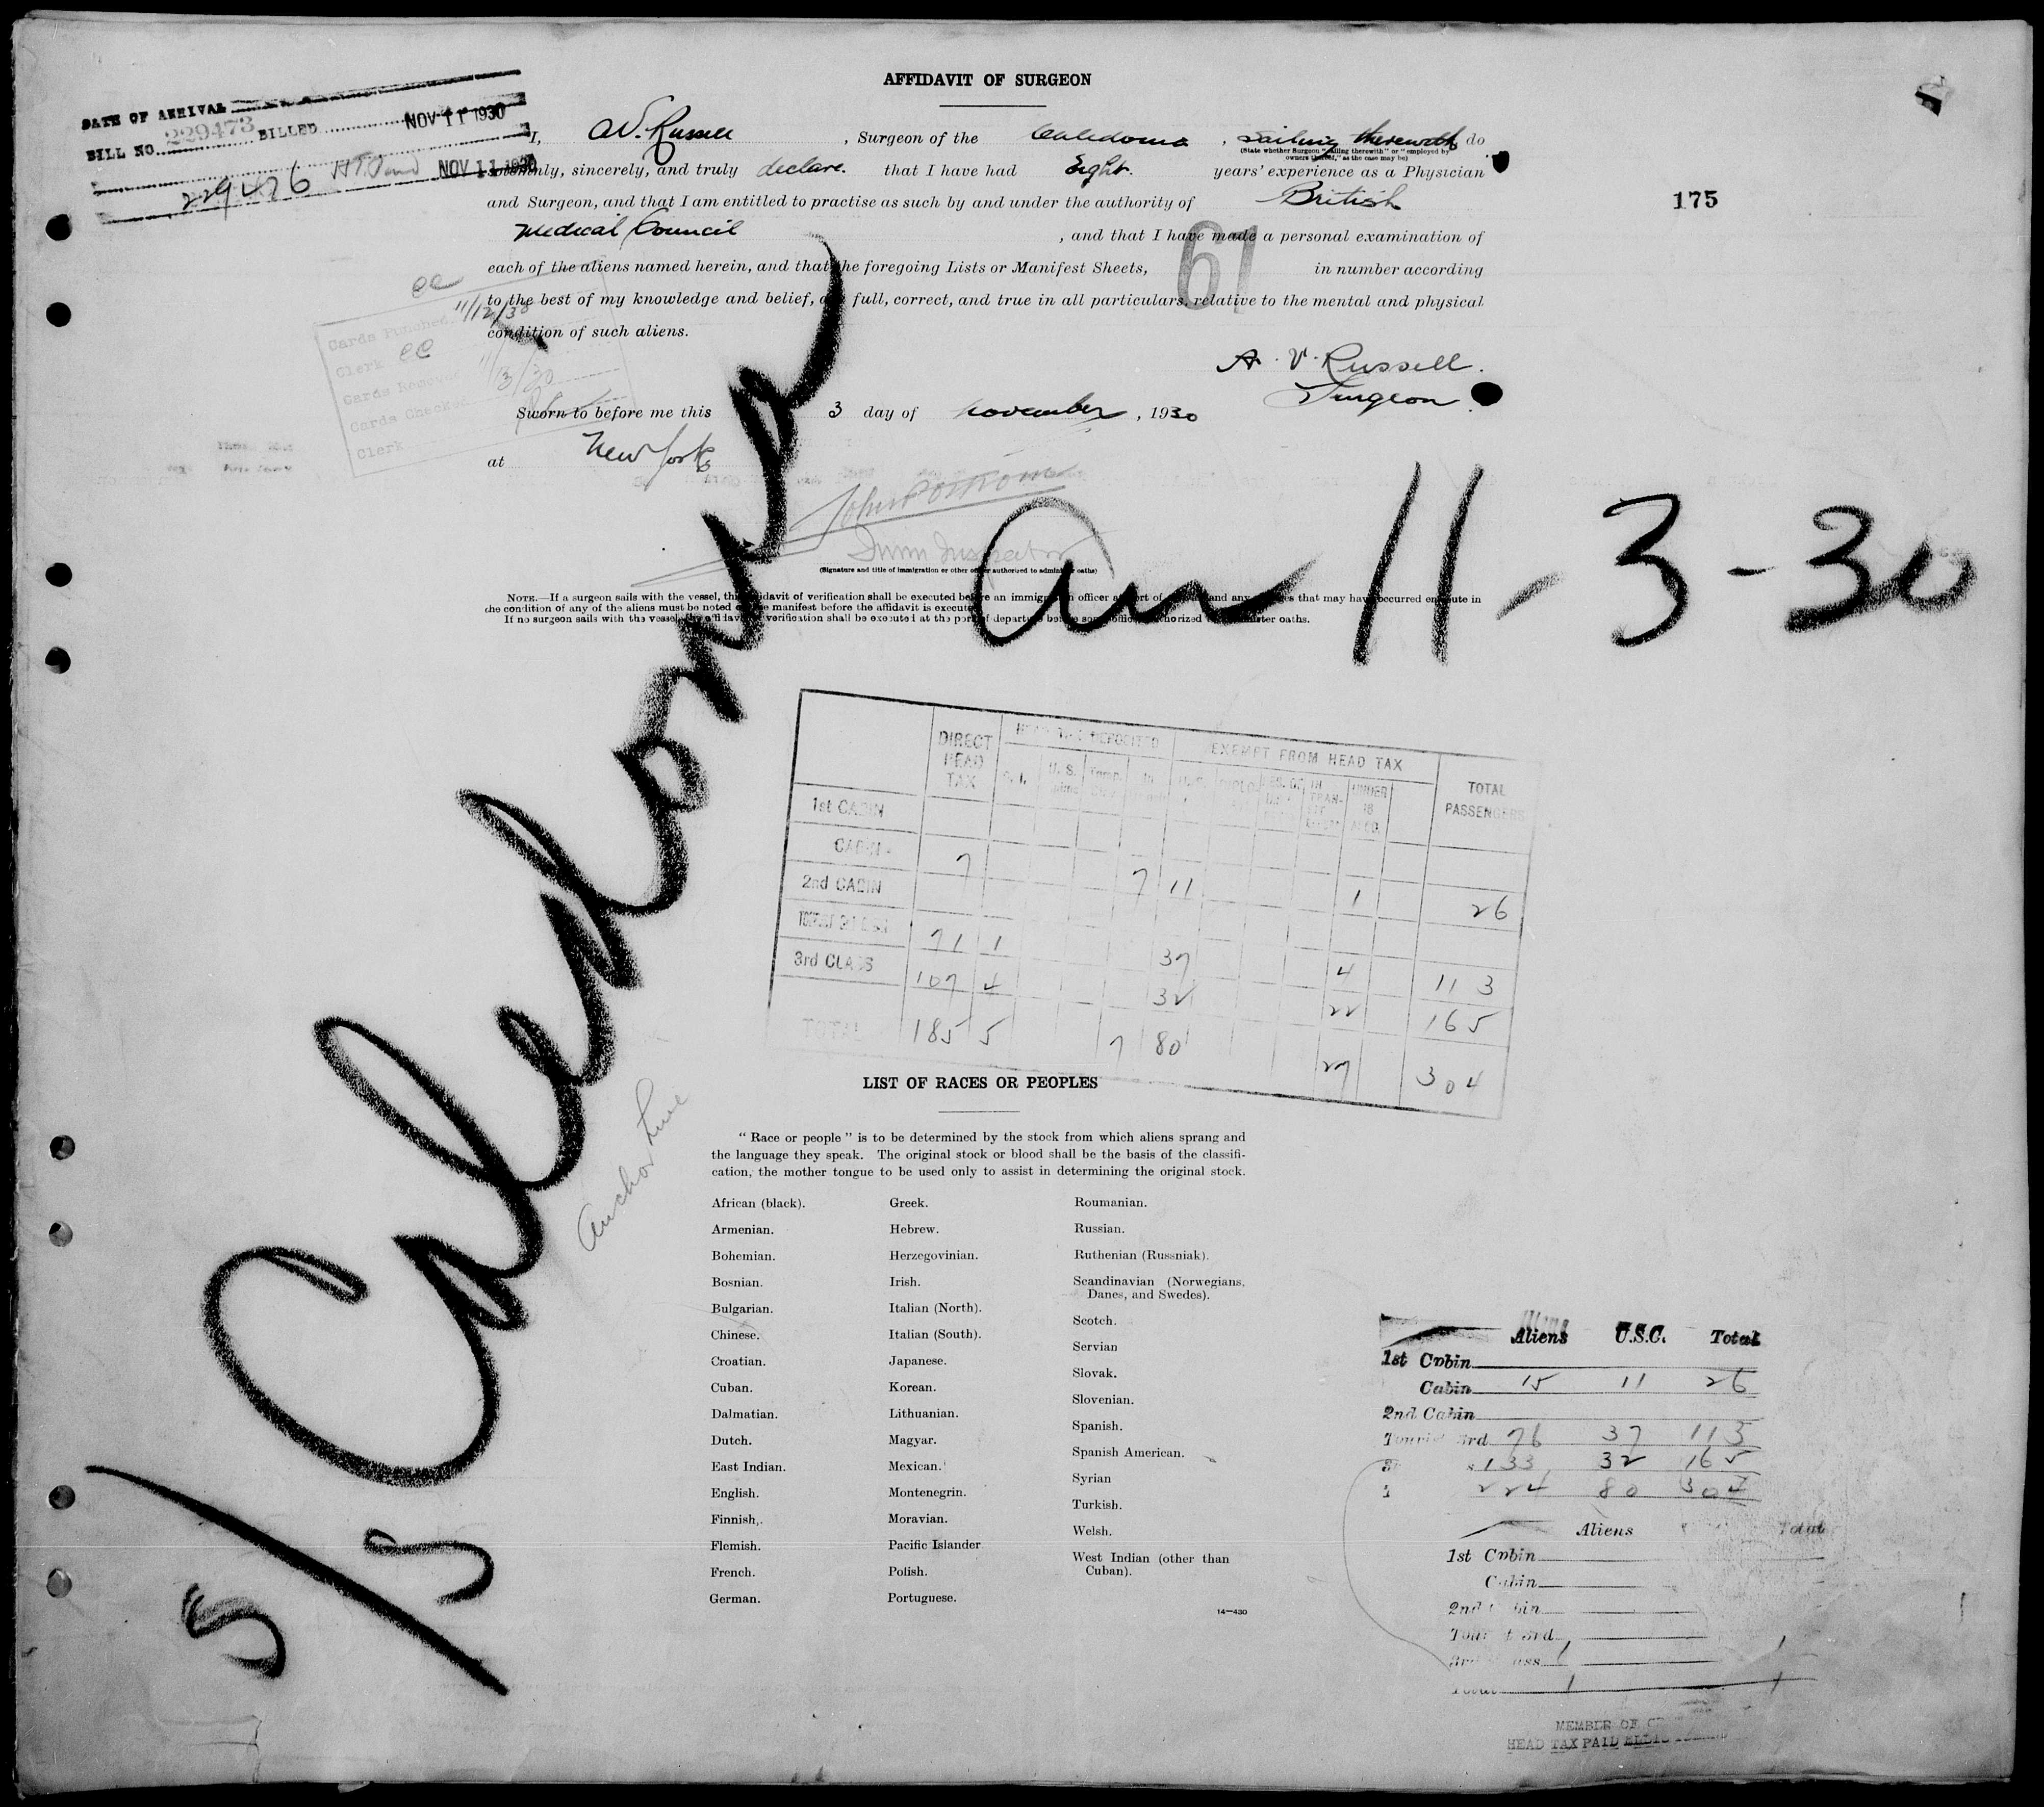 AFFIDAVIT OF SURGEON
DATE OF ARRIVAL
BILL NO. 229473 BILLED NOV 11 1930
229476 NOV 11 1930
175
I, A.V. Russell, Surgeon of the Caledonia, sailing therewith do
(State whether Surgeon "sailing therewith" or "employed by owners thereof," as the case may be)
solemnly, sincerely, and truly declare. that I have had Eight. years' experience as a Physician
and Surgeon, and that I am entitled to practise as such by and under the authority of British
Medical Council, and that I have made a personal examination of
each of the aliens named herein, and that the foregoing Lists or Manifest Sheets, 61 in number according
to the best of my knowledge and belief, are full, correct, and true in all particulars, relative to the mental and physical
condition of such aliens.
A. V. Russell.
Surgeon.
Cards Punched 11/12/30
Clerk CC
Cards Removed
Cards Checked
Clerk
Sworn to before me this 3 day of November, 1930
at New York
Imm Inspector
(Signature and title of immigration or other officer authorized to administer oaths)
NOTE.—If a surgeon sails with the vessel, this affidavit of verification shall be executed before an immigration officer at port of and any that may have occurred en route in
the condition of any of the aliens must be noted on the manifest before the affidavit is executed
If no surgeon sails with the vessel, the affidavit of verification shall be executed at the port of departure before some officer authorized to administer oaths.
S/S Caledonia
Arr 11-3-30
Anchor Line
DIRECT HEAD TAX HEAD TAX DEPOSITED EXEMPT FROM HEAD TAX TOTAL PASSENGERS
1st CABIN
CABIN 7 7 11 1 26
2nd CABIN
TOURIST 3rd CLASS 71 1 37 4 113
3rd CLASS 107 4 32 22 165
TOTAL 185 5 7 80 27 304
LIST OF RACES OR PEOPLES
"Race or people" is to be determined by the stock from which aliens sprang and
the language they speak. The original stock or blood shall be the basis of the classifi-
cation, the mother tongue to be used only to assist in determining the original stock.
African (black).
Armenian.
Bohemian.
Bosnian.
Bulgarian.
Chinese.
Croatian.
Cuban.
Dalmatian.
Dutch.
East Indian.
English.
Finnish.
Flemish.
French.
German.
Greek.
Hebrew.
Herzegovinian.
Irish.
Italian (North).
Italian (South).
Japanese.
Korean.
Lithuanian.
Magyar.
Mexican.
Montenegrin.
Moravian.
Pacific Islander
Polish.
Portuguese.
Roumanian.
Russian.
Ruthenian (Russniak).
Scandinavian (Norwegians,
Danes, and Swedes).
Scotch.
Servian
Slovak.
Slovenian.
Spanish.
Spanish American.
Syrian
Turkish.
Welsh.
West Indian (other than
Cuban).
14—430
Aliens U.S.C. Total
1st Cabin
Cabin 15 11 26
2nd Cabin
Tourist 3rd 76 37 113
133 32 165
224 80 304
Aliens Total
1st Cabin
Cabin
2nd Cabin
Tourist 3rd
3rd Class 1 1
Total 1 1
MEMBER OF
HEAD TAX PAID ELLIS ISLAND